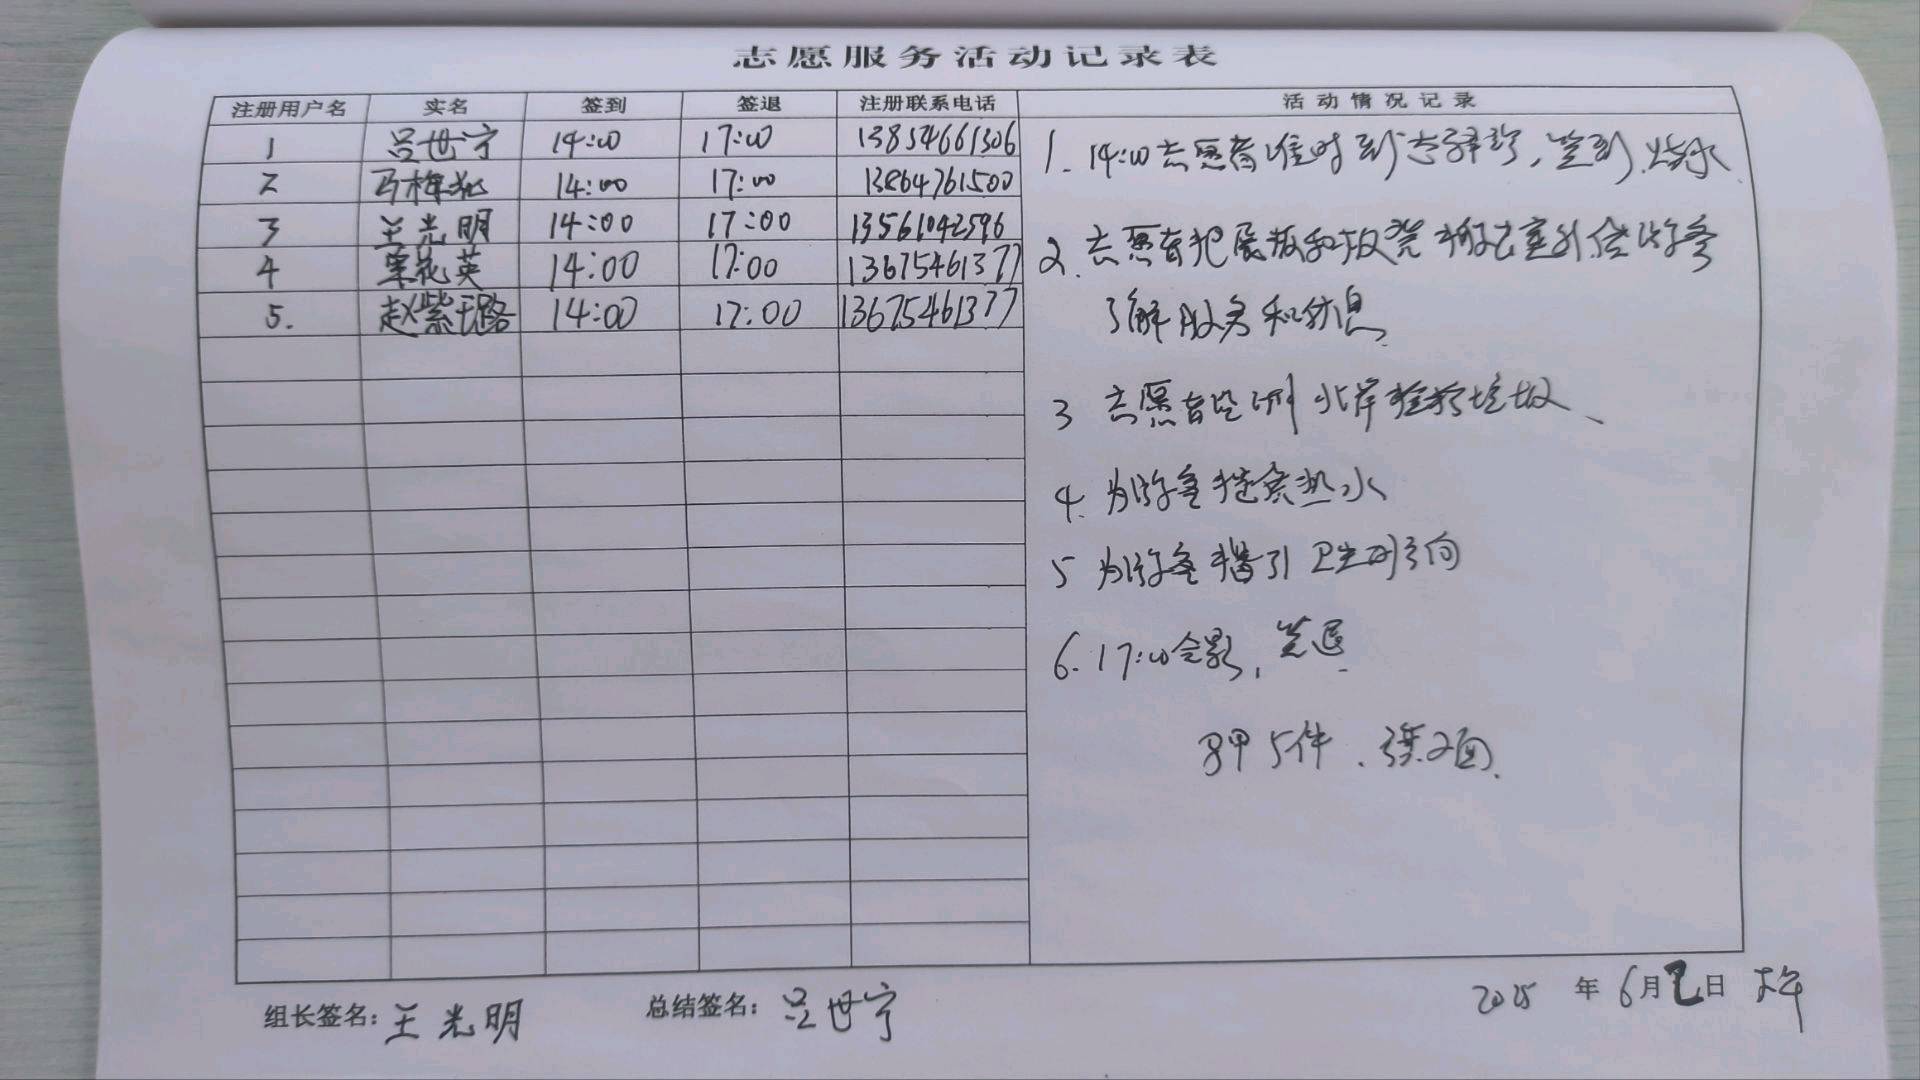 志愿服务活动记录表
注册用户名 实名 签到 签退 注册联系电话 活动情况记录
1 吕世宁 14:00 17:00 13854661306
2 14:00 17:00 13864761500
3 王光明 14:00 17:00 13561042596
4 花英 14:00 17:00 13675461377
5. 赵紫璐 14:00 17:00 13675461377
1. 14:00志愿者准时到志驿站,签到.烧水.
2. 志愿者把展板和板凳搬出室外,供游客
了解服务和休息.
3 志愿者沿湖北岸捡拾垃圾、
4. 为游客提供热水
5 为游客指引卫生间方向
6. 17:00合影,签退.
马甲5件.旗2面.
组长签名:王光明 总结签名:吕世宁 2025年6月2日 下午